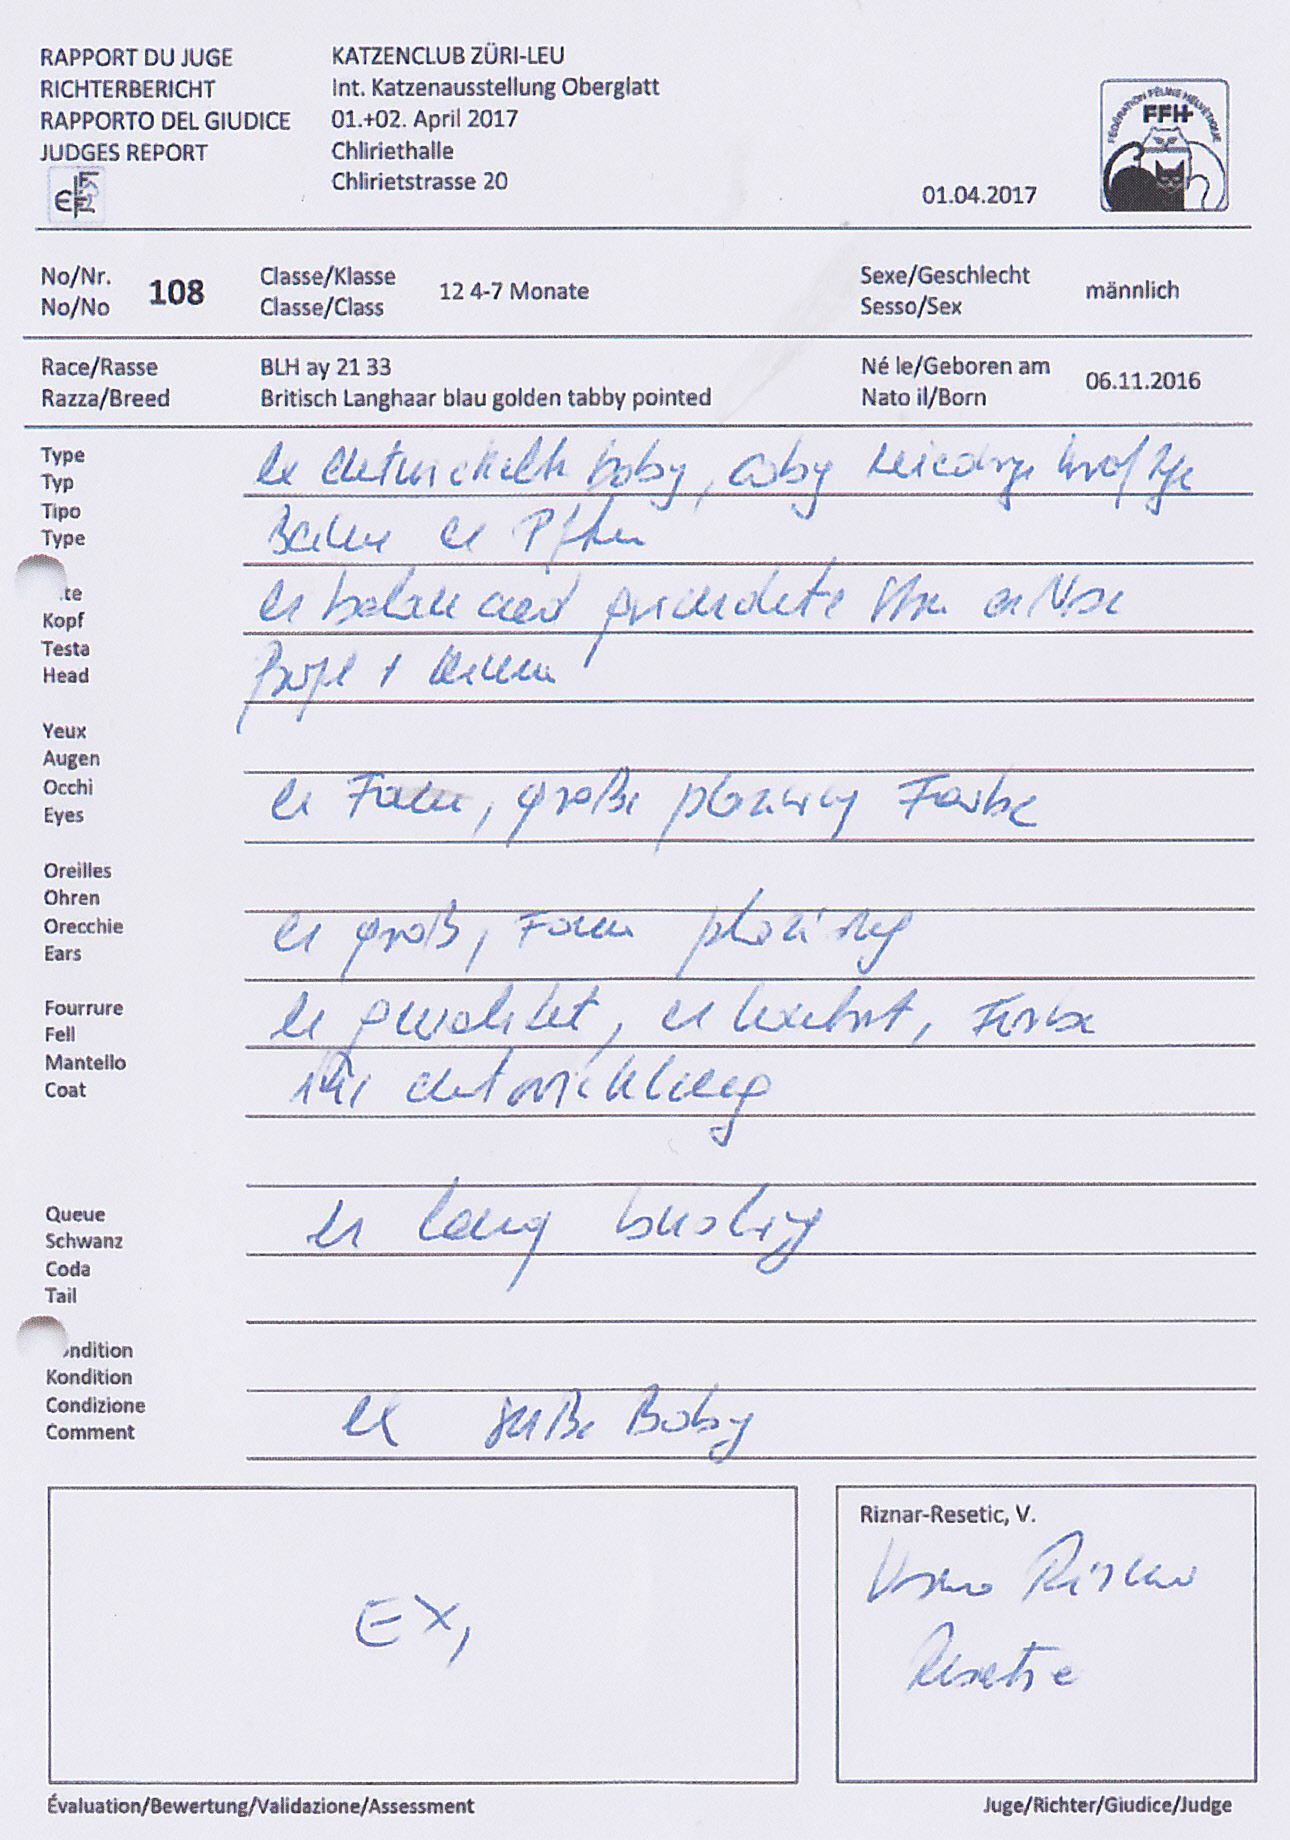 RAPPORT DU JUGE
RICHTERBERICHT
RAPPORTO DEL GIUDICE
JUDGES REPORT
KATZENCLUB ZÜRI-LEU
Int. Katzenausstellung Oberglatt
01.+02. April 2017
Chliriethalle
Chlirietstrasse 20
01.04.2017
FÉDÉRATION FÉLINE HELVÉTIQUE
FFH
No/Nr.
No/No
108
Classe/Klasse
Classe/Class
12 4-7 Monate
Sexe/Geschlecht
Sesso/Sex
männlich
Race/Rasse
Razza/Breed
BLH ay 21 33
Britisch Langhaar blau golden tabby pointed
Né le/Geboren am
Nato il/Born
06.11.2016
Type
Typ
Tipo
Type
ex baby, coby
te
Kopf
Testa
Head
ex
Yeux
Augen
Occhi
Eyes
ex Form, große Farbe
Oreilles
Ohren
Orecchie
Ears
ex groß, Form
Fourrure
Fell
Mantello
Coat
ex , ex , Farbe
in entwicklung
Queue
Schwanz
Coda
Tail
ex lang buschig
ndition
Kondition
Condizione
Comment
ex süße Baby
EX,
Riznar-Resetic, V.
Riznar
Resetic
Évaluation/Bewertung/Validazione/Assessment
Juge/Richter/Giudice/Judge